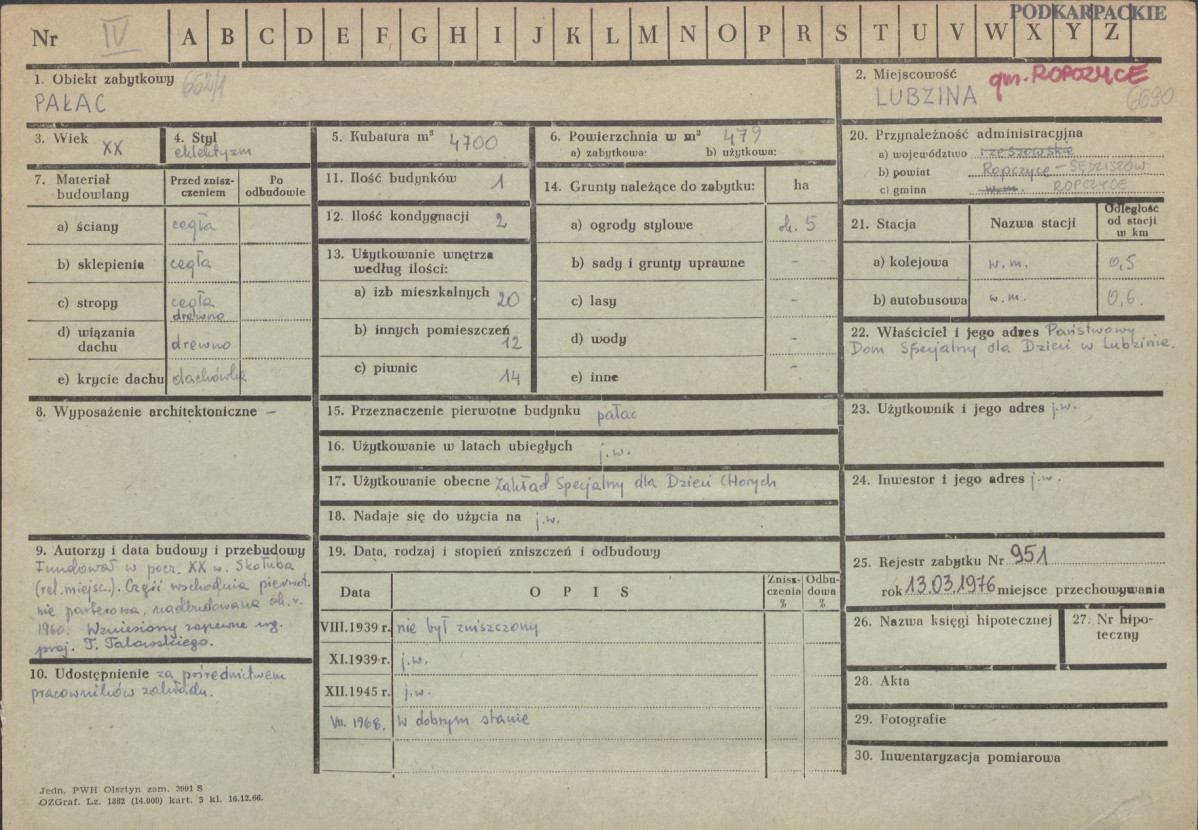 PODKARPACKIE
Nr IV A B C D E F G H I J K L M N O P R S T U V W X Y Z
1. Obiekt zabytkowy 662/1
PAŁAC
2. Miejscowość gm. ROPCZYCE
LUBZINA 6690
3. Wiek XX
4. Styl
eklektyzm
5. Kubatura m³ 4700
6. Powierzchnia w m² 479
a) zabytkowa: b) użytkowa:
7. Materiał budowlany
Przed znisz-
czeniem
Po
odbudowie
a) ściany cegła
b) sklepienia cegła
c) stropy cegła
drewno
d) wiązania
dachu drewno
e) krycie dachu dachówka
8. Wyposażenie architektoniczne –
9. Autorzy i data budowy i przebudowy
Fundował w pocz. XX w. Skołuba
(rel. miejsc.). Część wschodnia pierwot.
nie parterowa, nadbudowana ok. r.
1960. Wzniesiony zapewne wg.
proj. T. Talowskiego.
10. Udostępnienie za pośrednictwem
pracowników zakładu.
11. Ilość budynków 1
12. Ilość kondygnacji 2
13. Użytkowanie wnętrza
według ilości:
a) izb mieszkalnych 20
b) innych pomieszczeń
12
c) piwnic 14
14. Grunty należące do zabytku: ha
a) ogrody stylowe ok. 5
b) sady i grunty uprawne –
c) lasy –
d) wody –
e) inne –
15. Przeznaczenie pierwotne budynku pałac
16. Użytkowanie w latach ubiegłych j.w.
17. Użytkowanie obecne Zakład Specjalny dla Dzieci Chorych
18. Nadaje się do użycia na j.w.
19. Data, rodzaj i stopień zniszczeń i odbudowy
Data
O P I S
Znisz-
czenia
%
Odbu-
dowa
%
VIII.1939 r. nie był zniszczony
XI.1939 r. j.w.
XII.1945 r. j.w.
VII. 1968. w dobrym stanie
20. Przynależność administracyjna
a) województwo rzeszowskie
b) powiat Ropczyce – SĘDZISZÓW
c) gmina w.m. ROPCZYCE
21. Stacja Nazwa stacji
Odległość
od stacji
w km
a) kolejowa w.m. 0,5
b) autobusowa w.m. 0,6.
22. Właściciel i jego adres Państwowy
Dom Specjalny dla Dzieci w Lubzinie.
23. Użytkownik i jego adres j.w.
24. Inwestor i jego adres j.w.
25. Rejestr zabytku Nr 951
rok 13.03.1976 miejsce przechowywania
26. Nazwa księgi hipotecznej
27. Nr hipo-
teczny
28. Akta
29. Fotografie
30. Inwentaryzacja pomiarowa
Jedn. PWH Olsztyn zam. 3991 S
OZGraf. Lz. 1882 (14.000) kart. 3 kl. 16.12.66.